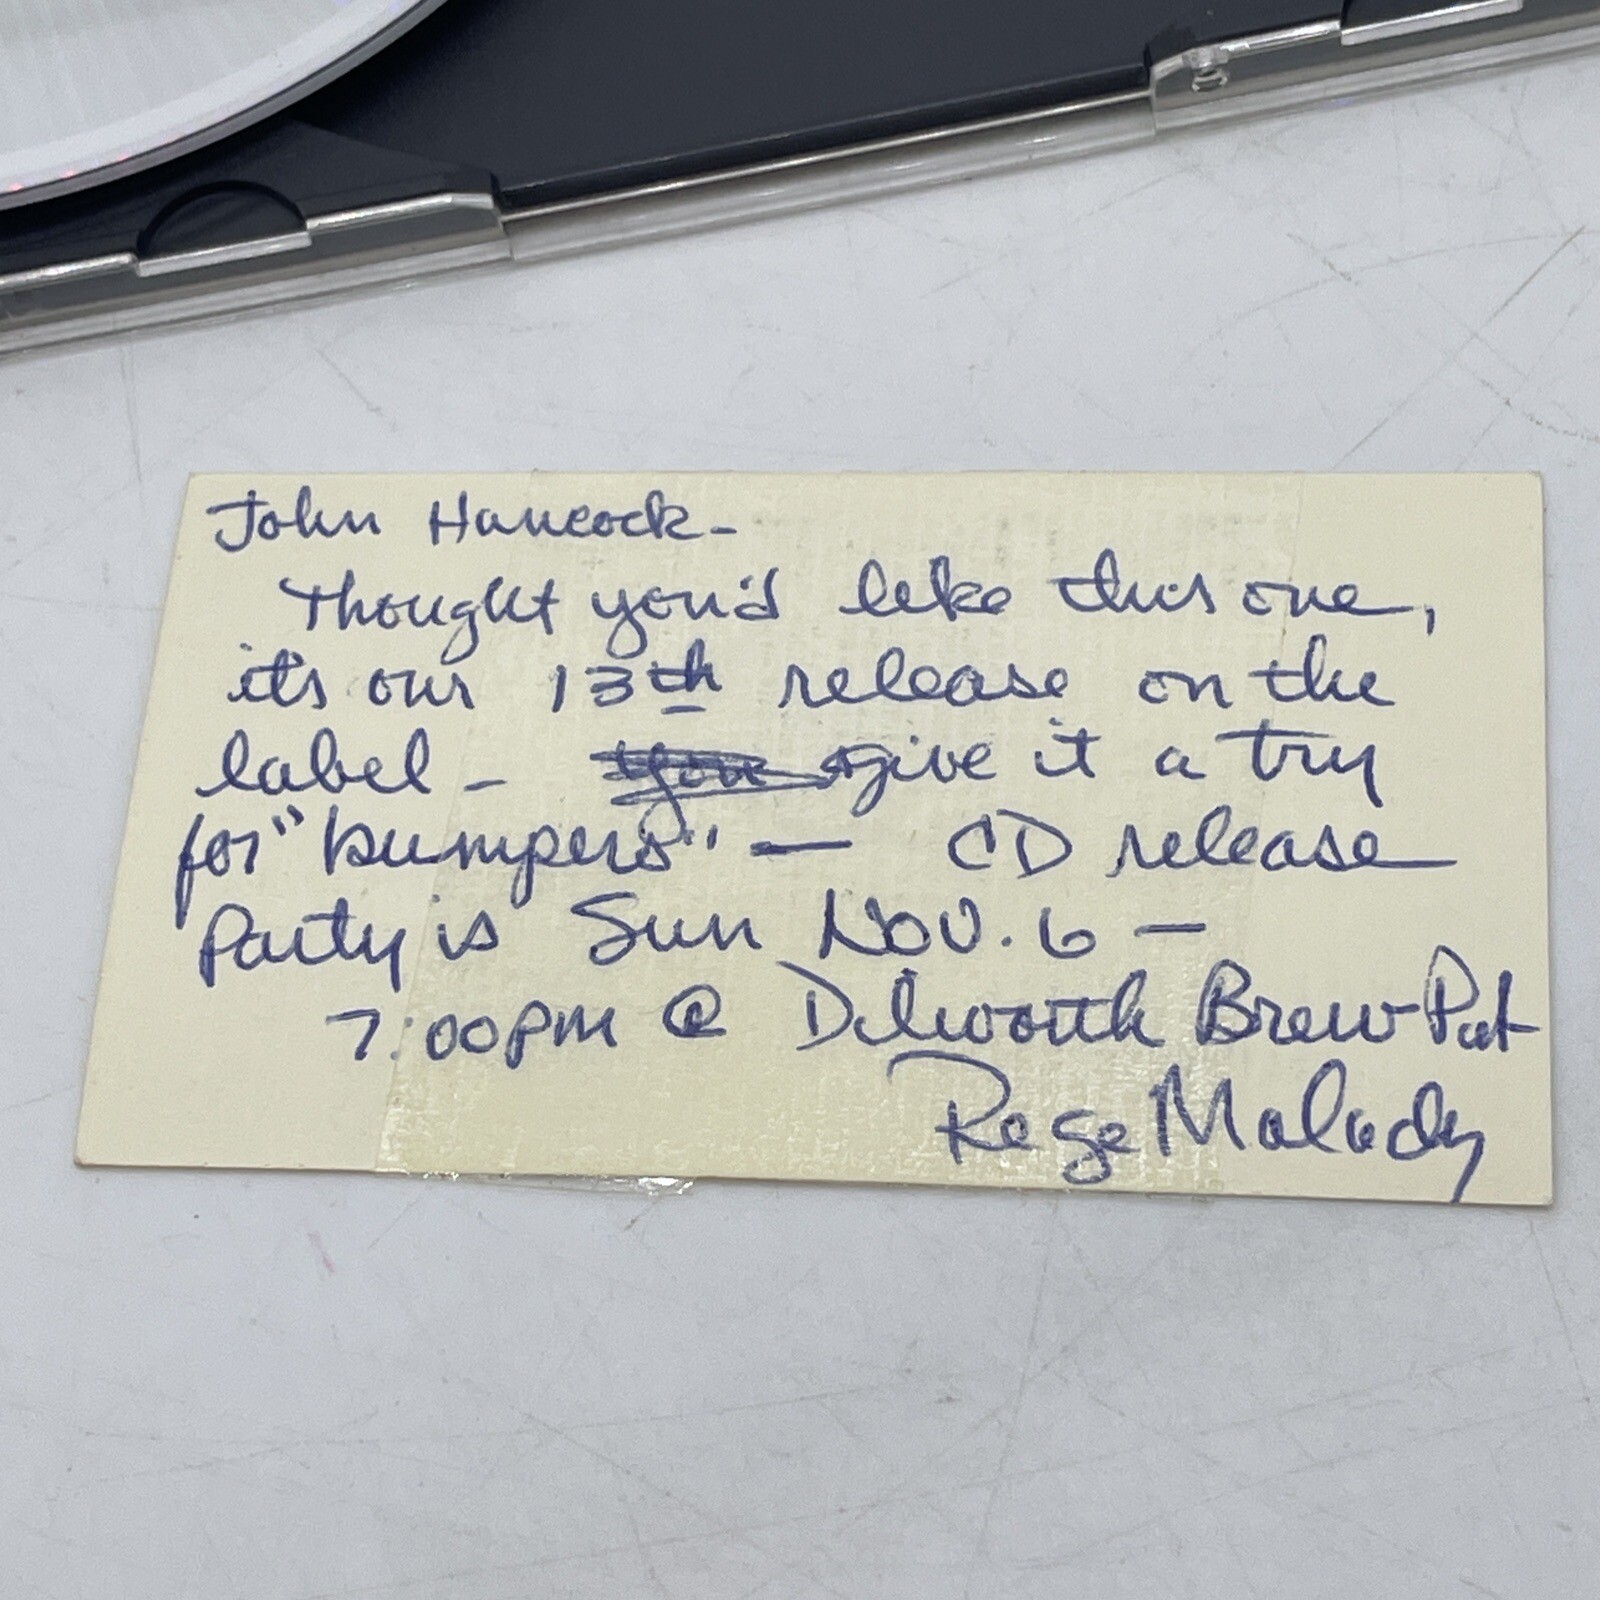 John Hancock-
Thought you'd like this one,
it's our 13th release on the
label - give it a try
for "bumpers" — CD release
Party is Sun Nov. 6 —
7:00pm @ Dilworth Brew-Pub
Rege Malady